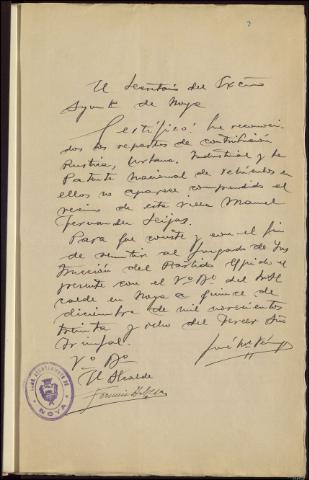 El Secretario del Excmo
Ayunt.º de Noya
Certifico: he reconoci-
dos los repartos de contribución
Rustica, Urbana, Industrial y de
Patente Nacional de vehiculos en
ellos no aparece comprendido el
vecino de esta villa Manuel
Fernandez Seijas.
Para que conste y con el fin
de remitir al Juzgado de Ins-
trucción del Partido expido el
presente con el Vº Bº del Al-
calde en Noya a quince de
diciembre de mil novecientos
treinta y ocho del Tercer Año
Triunfal.
Vº Bº
El Alcalde
NOYA